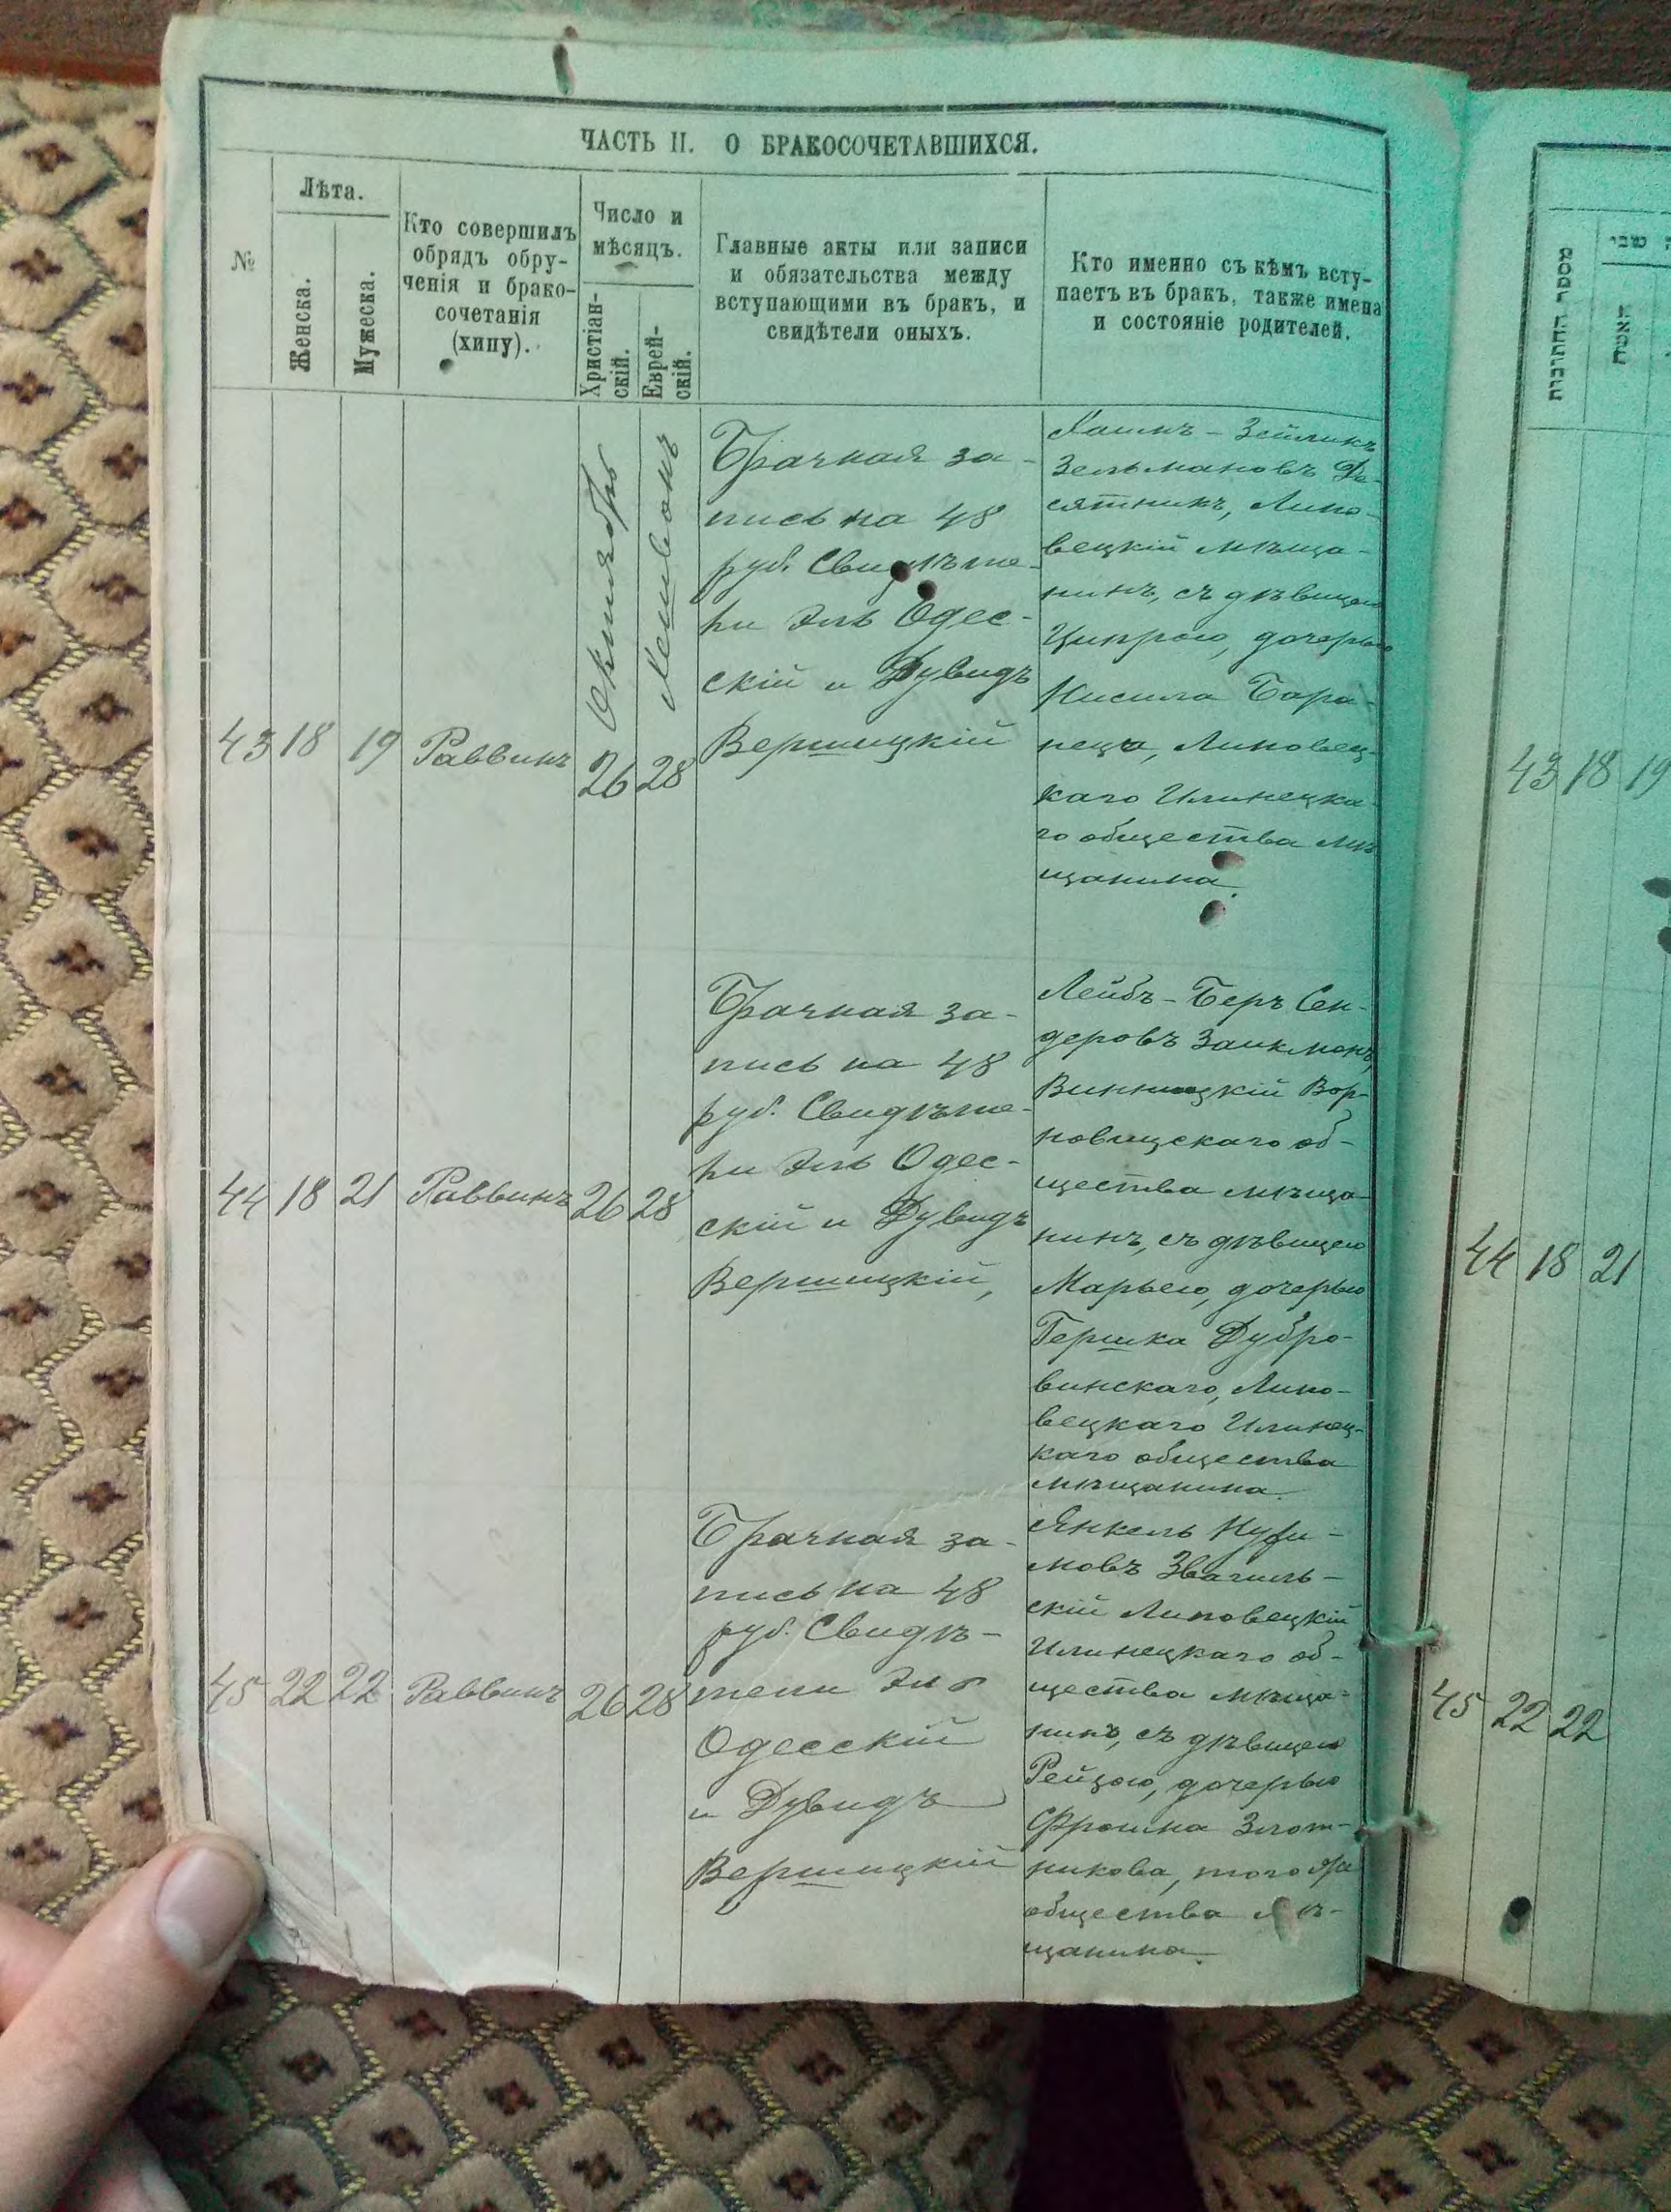 ЧАСТЬ II. О БРАКОСОЧЕТАВШИХСЯ.
№
Лѣта.
Женска.
Мужеска.
Кто совершилъ
обрядъ обру-
ченія и брако-
сочетанія
(хипу).
Число и
мѣсяцъ.
Христіан-
скій.
Еврей-
скій.
Главные акты или записи
и обязательства между
вступающими въ бракъ, и
свидѣтели оныхъ.
Кто именно съ кѣмъ всту-
паетъ въ бракъ, также имена
и состояніе родителей.
43
18
19
Раввинъ
Октябрь
26
Хешвонъ
28
Брачная за-
пись на 48
руб. Свидѣте-
ли Эль Одес-
скій и Дувидъ
Вершицкій
Зейликъ
Зельмановъ Де-
сятникъ, Липо-
вецкій мѣща-
нинъ, съ дѣвицею
Ципрою, дочерью
Нисила Бара-
неца, Липовец-
каго Илинецка-
го общества мѣ
щанина.
44
18
21
Раввинъ
26
28
Брачная за-
пись на 48
руб. Свидѣте-
ли Эль Одес-
скій и Дувидъ
Вершицкій,
Лейбъ-Беръ Сен-
деровъ Заикманъ,
Винницкій Вор-
новицскаго об-
щества мѣща-
нинъ, съ дѣвицею
Марьею, дочерью
Гершка Дубро-
винскаго, Липо-
вецкаго Илинец-
каго общества
мѣщанина.
45
22
22
Раввинъ
26
28
Брачная за-
пись на 48
руб. Свидѣ-
тели Эль
Одесскій
и Дувидъ
Вершицкій
Янкель Нуфи-
мовъ Звагиль-
скій Липовецкій
Илинецкаго об-
щества мѣща-
нинъ, съ дѣвицею
Рейзою, дочерью
Фроима Злот-
никова, того же
общества мѣ-
щанина.
מספר החתונות
שני
האשה
43
18
19
44
18
21
45
22
22